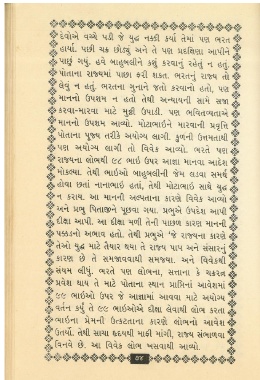 દેવોએ વચ્ચે પડી જે યુદ્ધ નક્કી કર્યાં તેમાં પણ ભરત
હાર્યા. પાછી ચક્ર છોડ્યું અને તે પણ પ્રદક્ષિણા આપીને
પાછું ગયું. હવે બાહુબલીને કશું કરવાનું રહેતું ન હતું.
પોતાના રાજ્યમાં પાછા ફરી શકત. ભરતનું રાજ્ય તો
લેવું ન હતું. ભરતના ગુનાને જતો કરવાનો હતો, પણ
માનનો ઉપશમ ન હતો તેથી અન્યાયની સામે સજા
કરવા-મારવા માટે મુઠ્ઠી ઉપાડી. પણ ભવિતવ્યતાએ
માનનો ઉપશમ આવ્યો. મોટાભાઈને મારવાની પ્રવૃત્તિ
પોતાના પૂજ્ય તરીકે અયોગ્ય લાગી. કુળની ઉત્તમતાથી
પણ અયોગ્ય લાગી તો વિવેક આવ્યો. ભરતે પણ
રાજ્યના લોભથી ૯૮ ભાઈ ઉપર આજ્ઞા માનવા આદેશ
મોકલ્યા. તેથી ભાઈઓ બાહુબલીની જેમ લડવા સમર્થ
હોવા છતાં નાનાભાઈ હતાં, તેથી મોટાભાઈ સાથે યુદ્ધ
ન કરાય. આ માનની અલ્પતાના કારણે વિવેક આવ્યો
અને પ્રભુ પિતાજીને પૂછવા ગયા. પ્રભુએ ઉપદેશ આપી
દીક્ષા આપી. આ દીક્ષા મળી તેની પાછળ કારણ માનની
પક્કડનો અભાવ હતો. તેથી પ્રભુએ ‘જે રાજ્યના કારણે
તેઓ યુદ્ધ માટે તૈયાર થયા તે રાજ્ય પાપ અને સંસારનું
કારણ છે તે સમજાવવાથી સમજ્યા. અને વિવેકથી
સંયમ લીધું. ભરતે પણ લોભના, સત્તાના કે ચક્રરત્ન
પ્રવેશ થાય તે માટે પોતાના સ્થાન પ્રાપ્તિનાં આવેશમાં
૯૯ ભાઈઓ ઉપર જે આજ્ઞામાં આવવા માટે અયોગ્ય
વર્તન કર્યું તે ૯૯ ભાઈઓએ દીક્ષા લેવાથી લોભ કરતા
ભાઈના પ્રેમની ઉત્કટતાના કારણે લોભનો આવેશ
ઉતર્યો. તેથી સાચા હૃદયથી માફી માંગી, રાજ્ય સંભાળવા
વિનવે છે. આ વિવેક લોભ ખસવાથી આવ્યો.